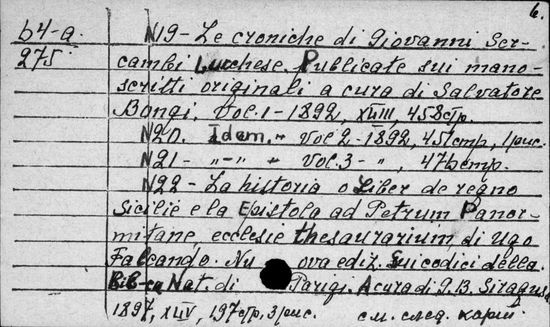 6.
64-a. N19 - Le croniche di Giovanni Ser-
275 cambi Lucchese. Publicate sui mano-
scritti originali a cura di Salvatore
Bongi. Vol. 1 - 1892, XLIII, 458стр.
N20. Idem. " Vol 2 - 1892, 451стр, 1рис.
N21 - „ - „ " Vol. 3 - „ , 476стр.
N22 - La historia o Liber de regno
Sicilie e la Epistola ad Petrum Panor-
mitane, ecclesie thesaurarium di Ugo
Falcando. Nuova ediz. sui codici della
Bib-ca Nat. di Parigi. A cura di G.B. Siragusa
1897, XLIV, 197стр, 3рис. см. след. карт.